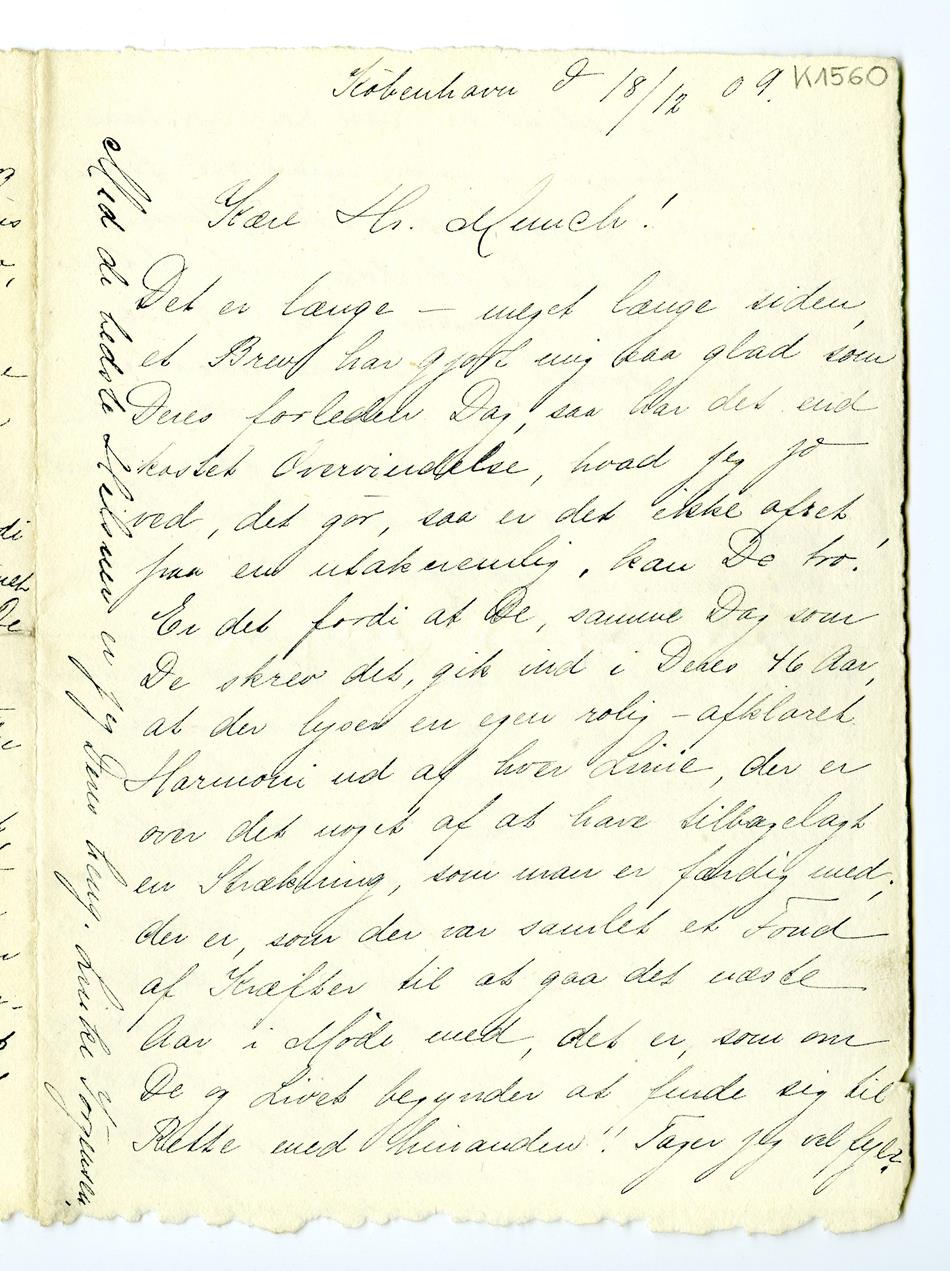 K1560
København d 18/12 09.
Kære Hr. Munch!
Det er længe – meget længe siden,
et Brev har gjort mig saa glad som
Deres forleden Dag, saa har det end
kostet Overvindelse, hvad jeg jo
ved, det gør, saa er det ikke ofret
paa en utaknemlig, kan De tro!
Er det fordi at De, samme Dag som
De skrev det, gik ind i Deres 46 Aar,
at der lyser en egen rolig – afklaret
Harmoni ud af hver Linie, der er
over det noget af at have tilbagelagt
en Strækning, som man er færdig med,
der er, som der var samlet et Fond
af Kræfter til at gaa det næste
Aar i Møde med, det er, som om
De og Livet begynder at finde sig til
Rette med hinanden!! Tager jeg vel fejl?
Med de bedste Hilsner er jeg Deres heng.